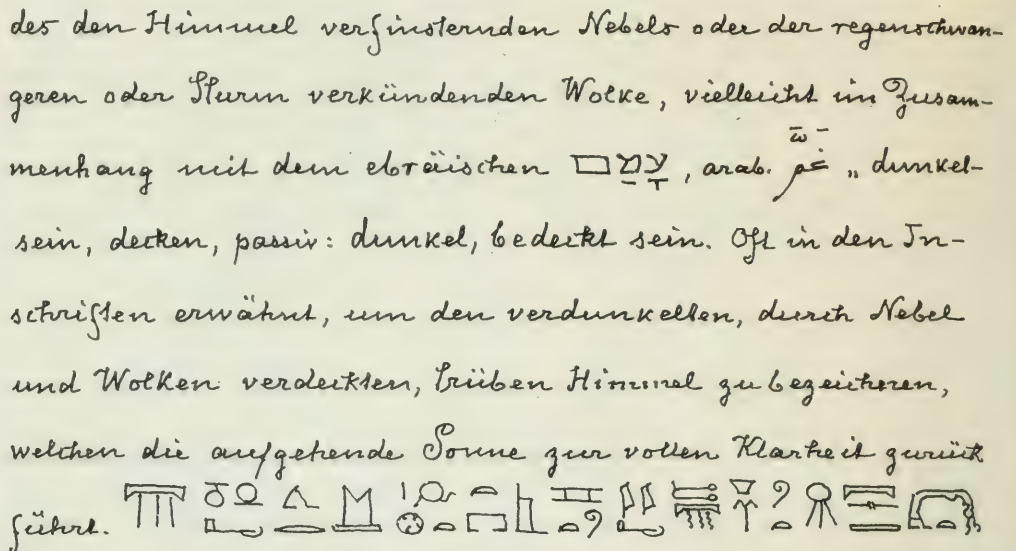 des den Himmel verfinsternden Nebels oder der regenschwan-
geren oder Sturm verkündenden Wolke, vielleicht im Zusam-
menhang mit dem ebräischen עָמַם, arab. غَمَّ „dunkel-
sein, decken, passiv: dunkel, bedeckt sein. Oft in den In-
schriften erwähnt, um den verdunkelten, durch Nebel
und Wolken verdeckten, trüben Himmel zu bezeichnen,
welchen die aufgehende Sonne zur vollen Klarheit zurück
führt.